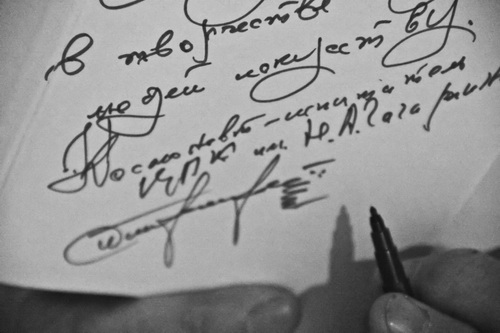 в творчестве
людей искусству.
Космонавт-испытатель
ЦПК им Ю.А.Гагарина